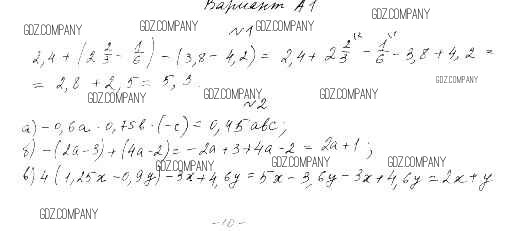 Вариант А1
GDZ.COMPANY GDZ.COMPANY GDZ.COMPANY GDZ.COMPANY
№1
2,4 + (2 2/3 - 1/6) - (3,8 - 4,2) = 2,4 + 2 2/3 - 1/6 - 3,8 + 4,2 =
GDZ.COMPANY
= 2,8 + 2,5 = 5,3.
GDZ.COMPANY GDZ.COMPANY GDZ.COMPANY
№2
а) -0,6a · 0,75b · (-c) = 0,45abc;
б) -(2a-3) + (4a-2) = -2a+3+4a-2 = 2a+1;
GDZ.COMPANY GDZ.COMPANY GDZ.COMPANY
в) 4(1,25x - 0,9y) - 3x + 4,6y = 5x - 3,6y - 3x + 4,6y = 2x + y
GDZ.COMPANY
-10-